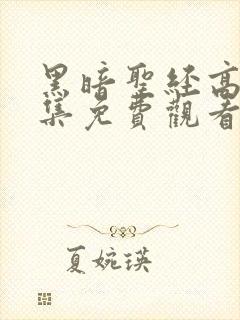 黑暗聖経高
集免費觀看
夏婉瑛